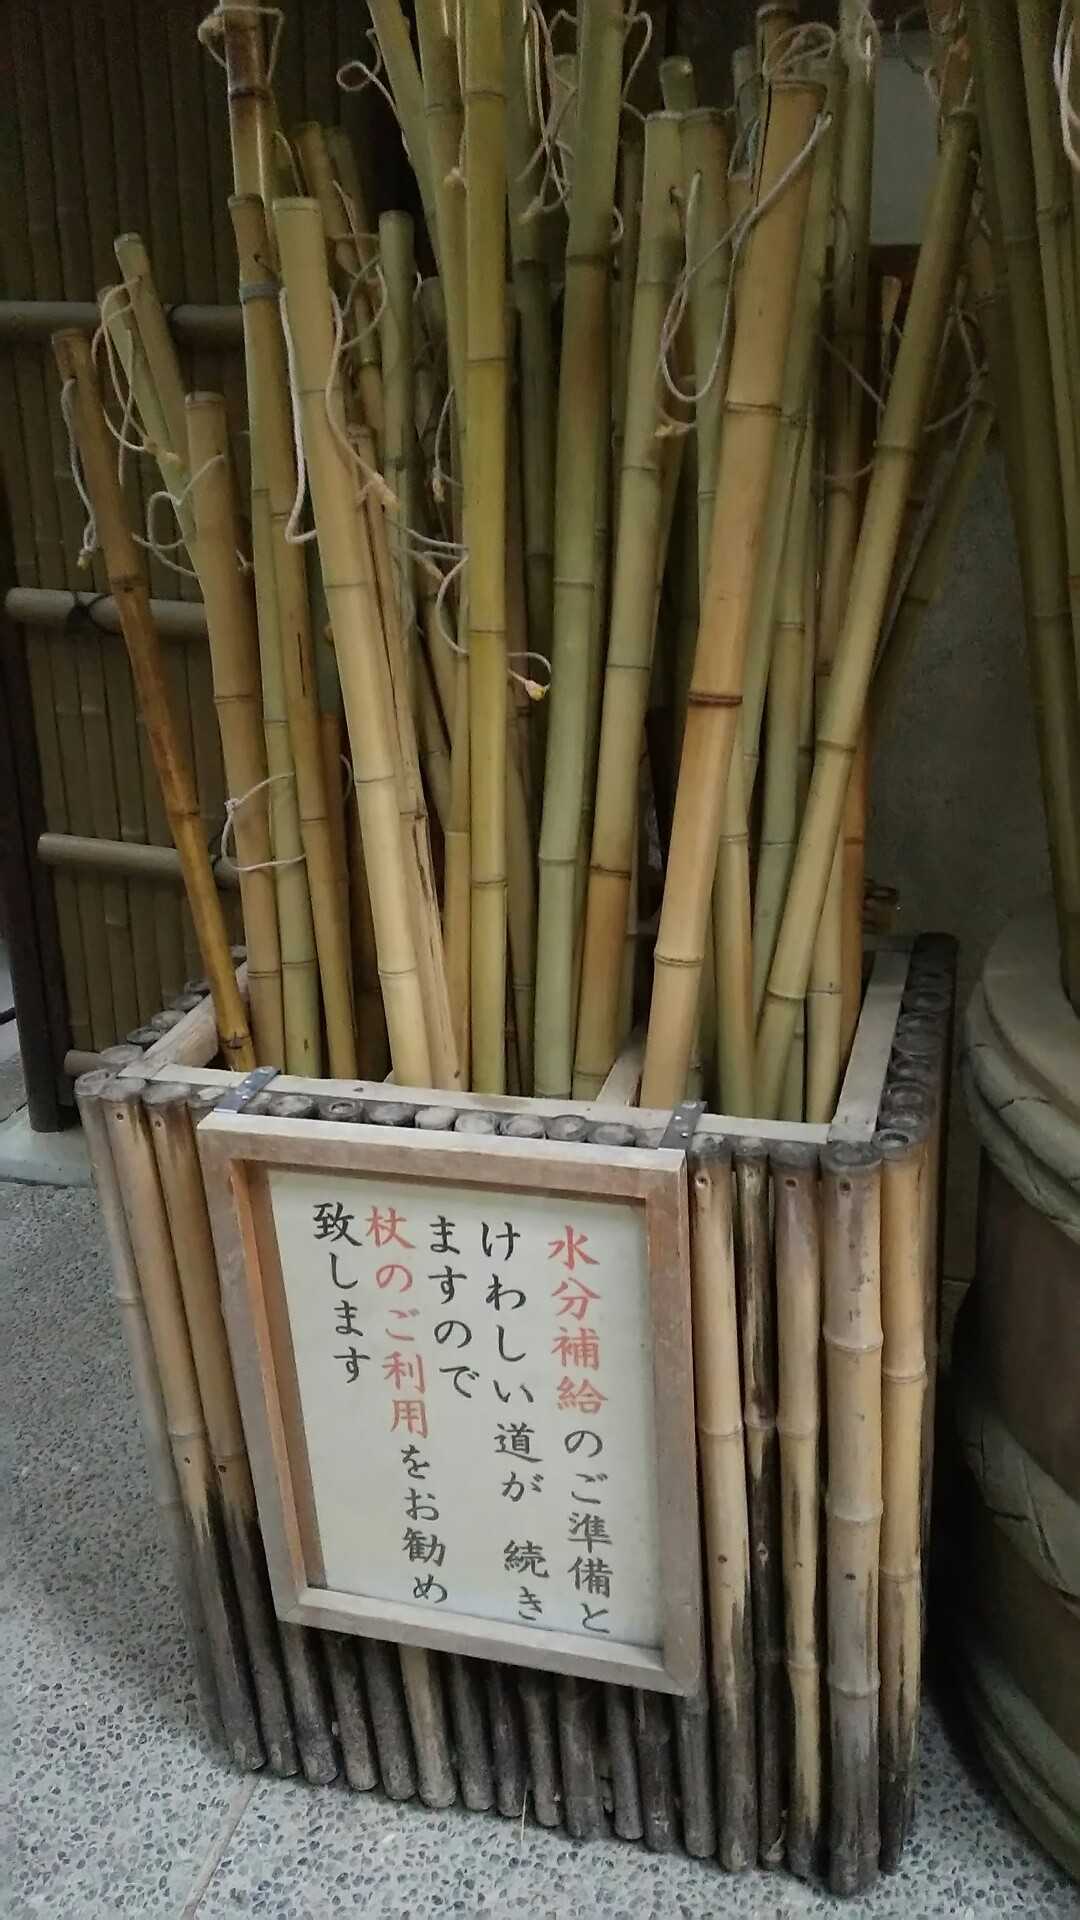 水分補給のご準備と
けわしい道が 続き
ますので
杖のご利用をお勧め
致します